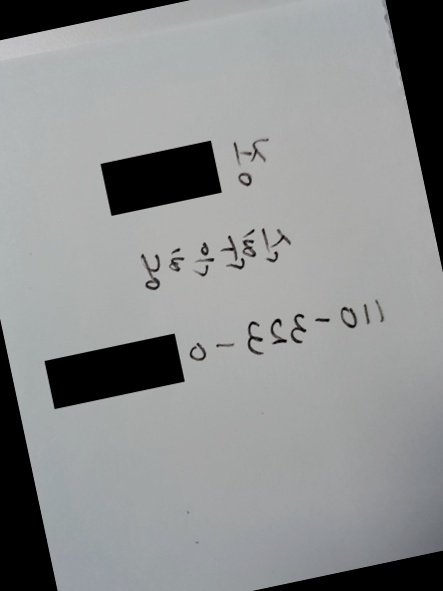 정
신한은행
110-353-0